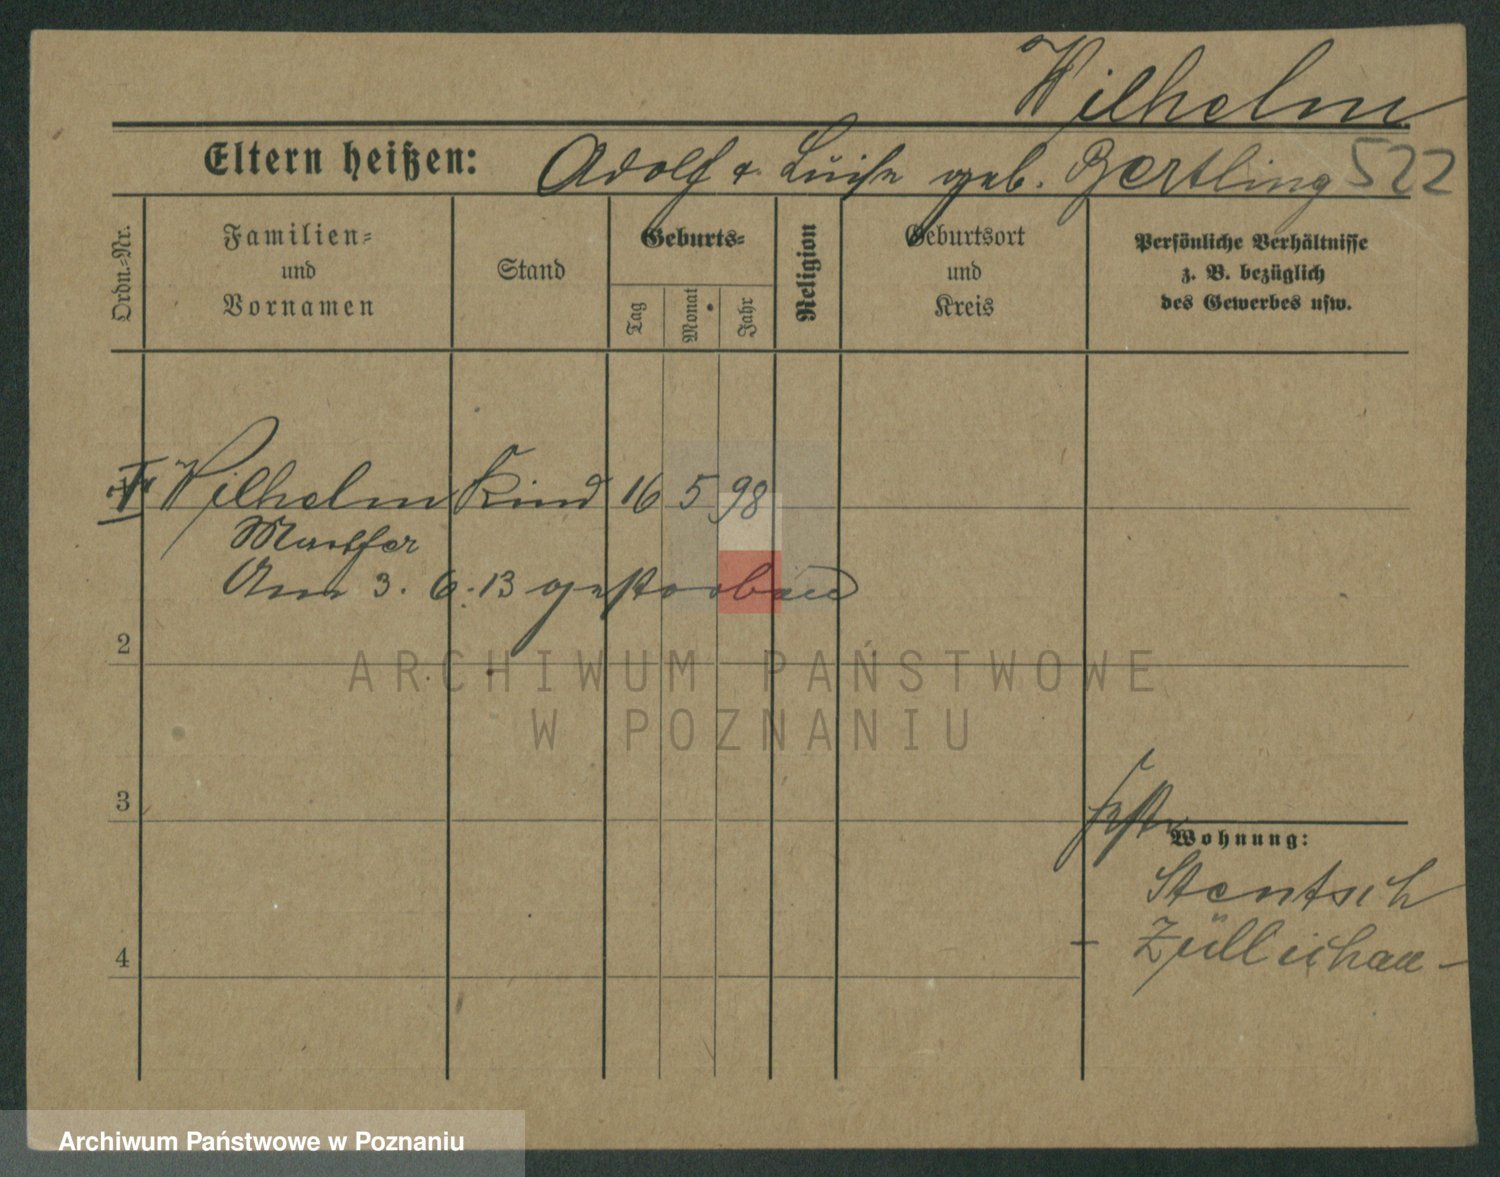 Wilhelm
Eltern heißen: Adolf & Luise geb. Bertling 522
Ordn.-Nr.
Familien-
und
Vornamen
Stand
Geburts-
Tag
Monat
Jahr
Religion
Geburtsort
und
Kreis
Persönliche Verhältnisse
z. B. bezüglich
des Gewerbes usw.
Wilhelm Kind 16 5 98
Am 3. 6. 13 gestorben
2
ARCHIWUM PAŃSTWOWE
W POZNANIU
3
Wohnung:
Stentsch
4
Züllichau
Archiwum Państwowe w Poznaniu